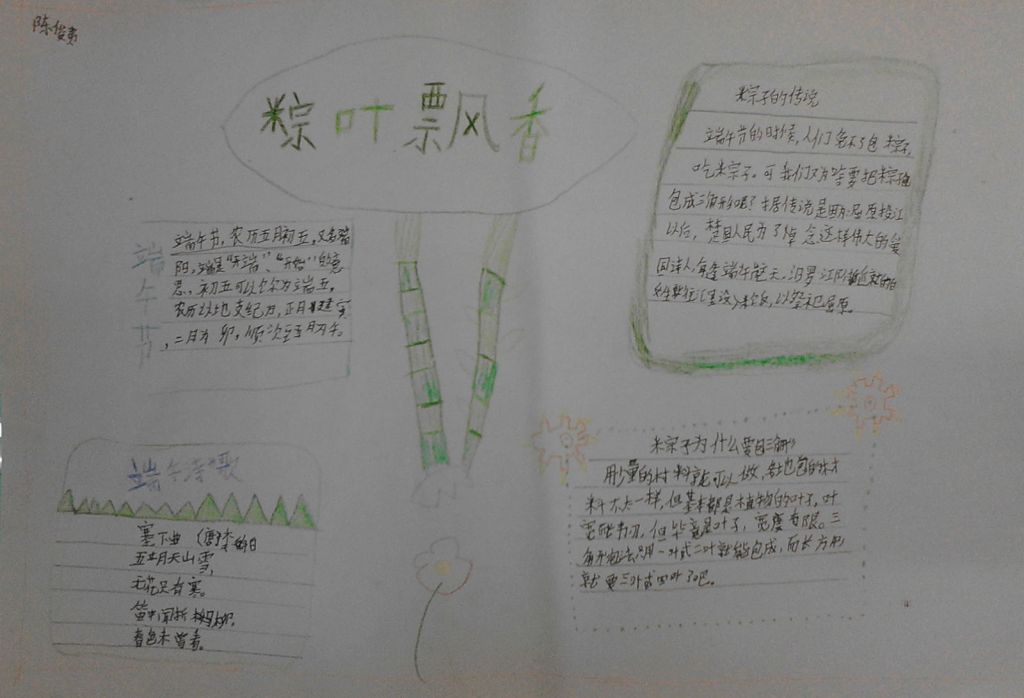 陈俊
粽叶飘香
端午节
端午节，农历五月初五，又名端
阳，端是“开端”、“开始”的意
思，初五可以称为端五。
农历以地支纪月，正月建寅
，二月为卯，顺次至五月为午。
端午诗歌
塞下曲（唐）李白
五月天山雪，
无花只有寒。
笛中闻折柳，
春色未曾看。
粽子的传说
端午节的时候，人们免不了包粽子，
吃粽子。可我们为啥要把粽子
包成三角形的呢？据传说是因为屈原投江
以后，楚国人民为了悼念这样伟大的爱
国诗人，每逢端午这天，汨罗江
以祭祀屈原。
粽子为什么要包三角
用少量的材料就可以做，各地包的材
料不太一样，但基本都是植物的叶子，叶
宽，但毕竟是叶子，宽度有限。三
角形包法只用一叶或二叶就能包成，而长方形
就要三叶或四叶了吧。